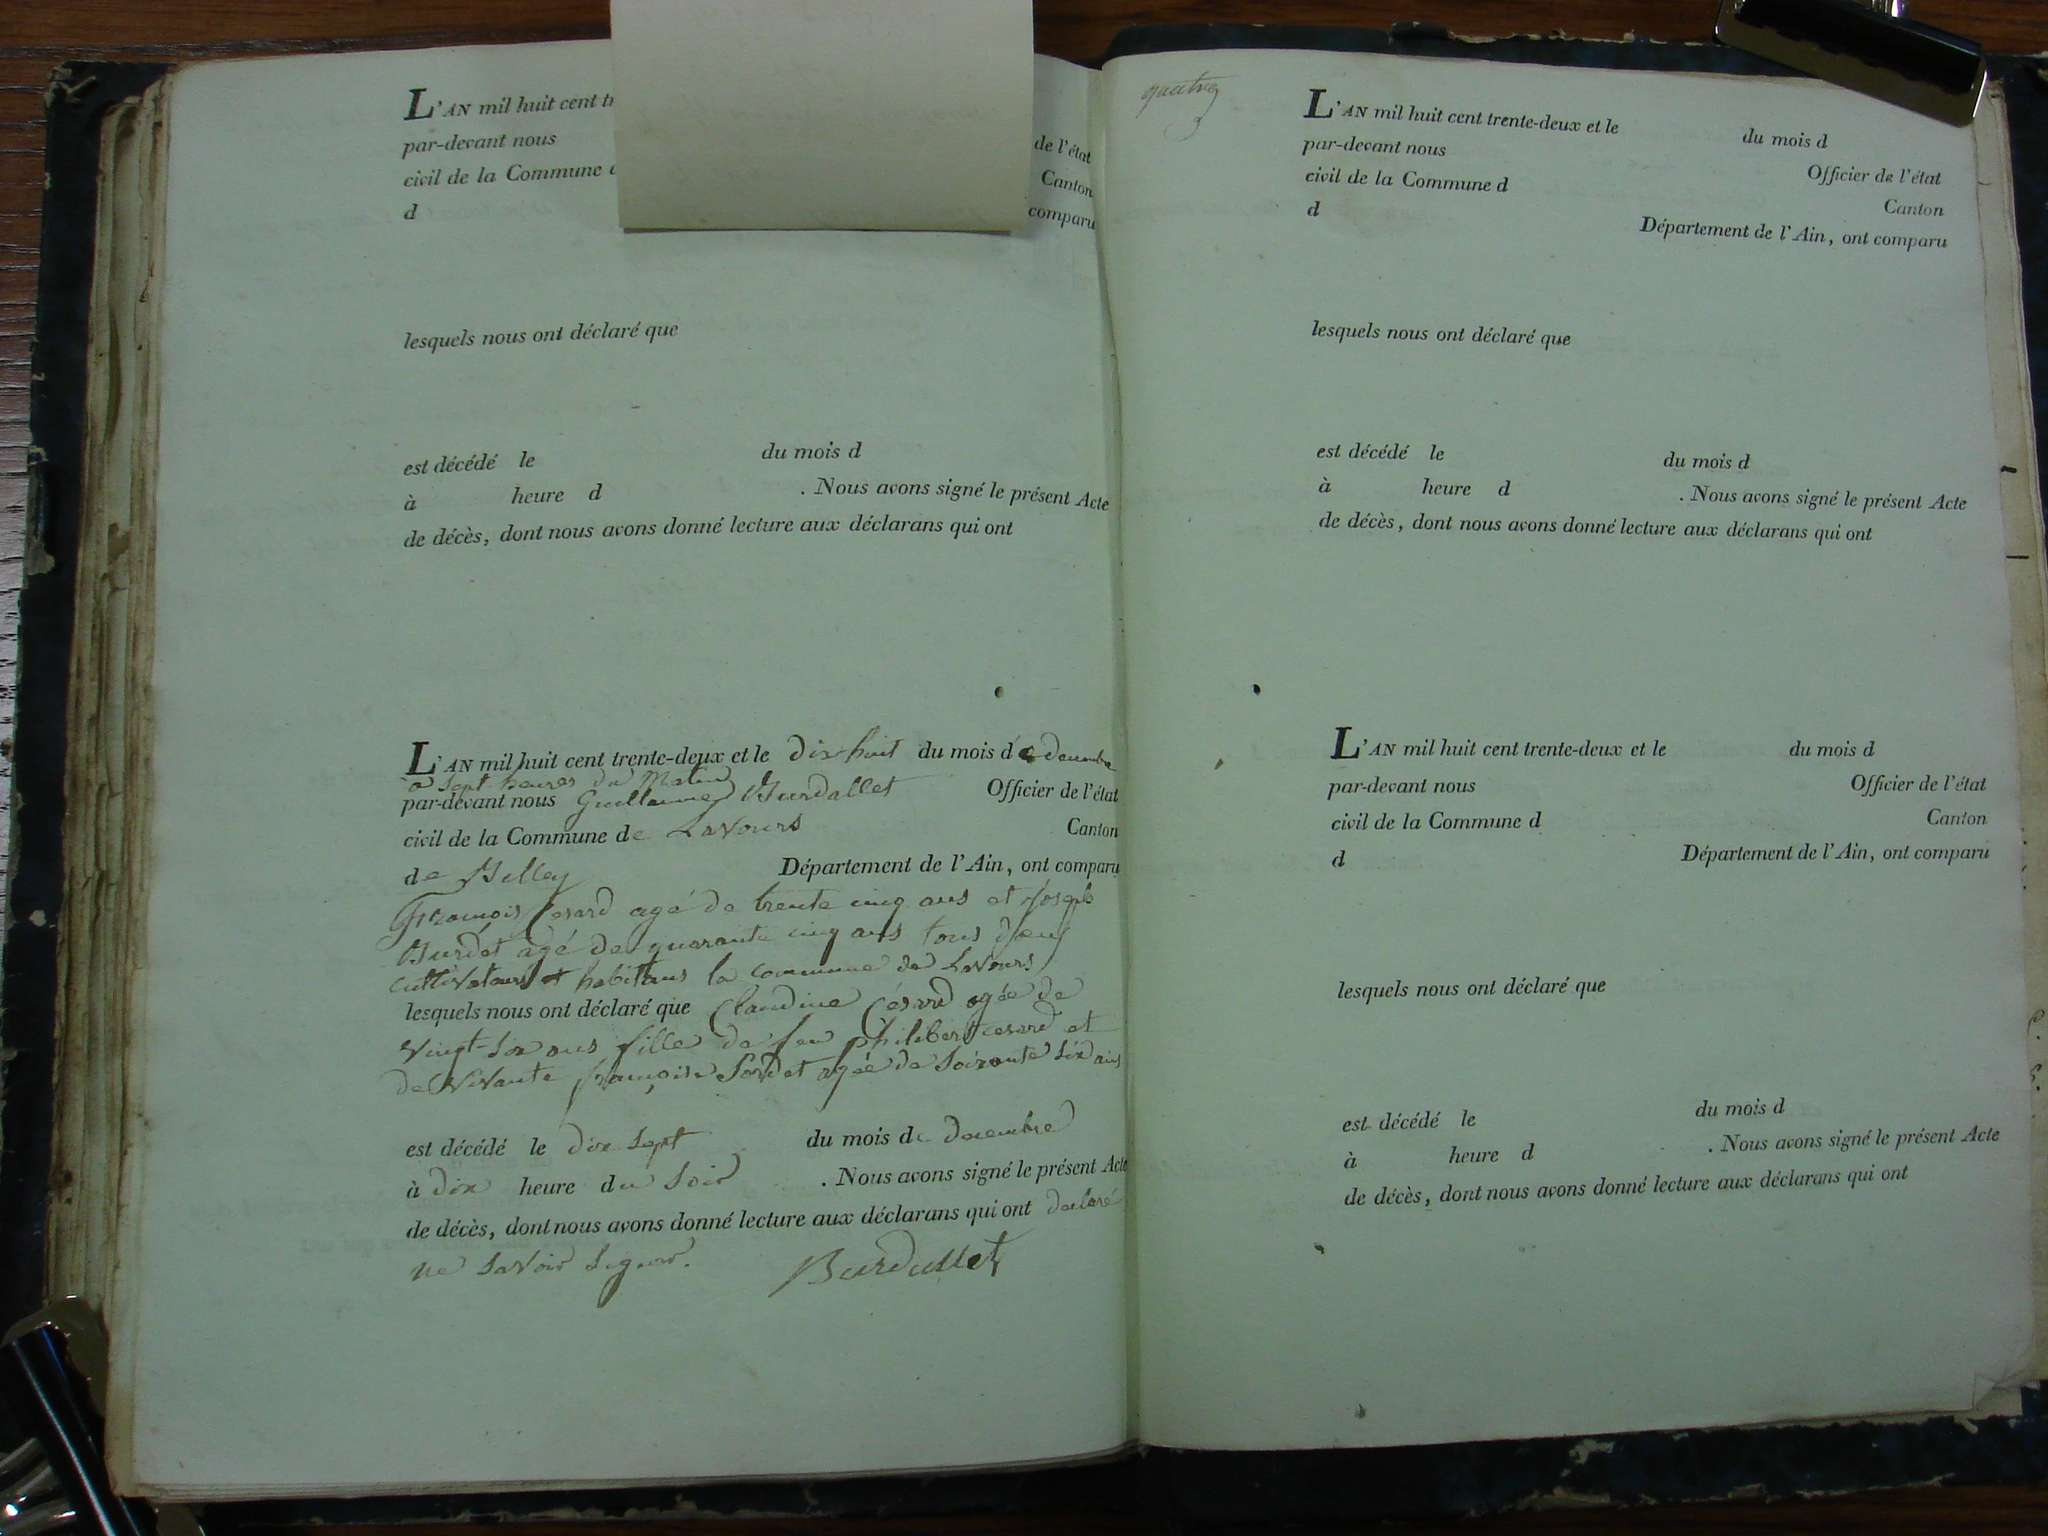 L'AN mil huit cent tr
par-devant nous de l'état
civil de la Commune d Canton
d comparu
lesquels nous ont déclaré que
est décédé le du mois d
à heure d . Nous avons signé le présent Acte
de décès, dont nous avons donné lecture aux déclarans qui ont
L'AN mil huit cent trente-deux et le dix huit du mois de decembre
à sept heures du Matin
par-devant nous Guillaume Burdallet Officier de l'état
civil de la Commune de Lavours Canton
de Belley Département de l'Ain, ont comparu
François Cesard agé de trente cinq ans et Joseph
Burdet agé de quarante cinq ans tous deux
cultivateurs et habitans la commune de Lavours
lesquels nous ont déclaré que Claudine Césard agée de
vingt-six ans fille de feu philibert cesard et
de vivante françoise Sordet agée de soixante six ans
est décédé le dix sept du mois de decembre
à dix heure du soir . Nous avons signé le présent Acte
de décès, dont nous avons donné lecture aux déclarans qui ont declaré
ne savoir signer. Burdallet
quatre
L'AN mil huit cent trente-deux et le du mois d
par-devant nous Officier de l'état
civil de la Commune d Canton
d Département de l'Ain, ont comparu
lesquels nous ont déclaré que
est décédé le du mois d
à heure d . Nous avons signé le présent Acte
de décès, dont nous avons donné lecture aux déclarans qui ont
L'AN mil huit cent trente-deux et le du mois d
par-devant nous Officier de l'état
civil de la Commune d Canton
d Département de l'Ain, ont comparu
lesquels nous ont déclaré que
est décédé le du mois d
à heure d . Nous avons signé le présent Acte
de décès, dont nous avons donné lecture aux déclarans qui ont